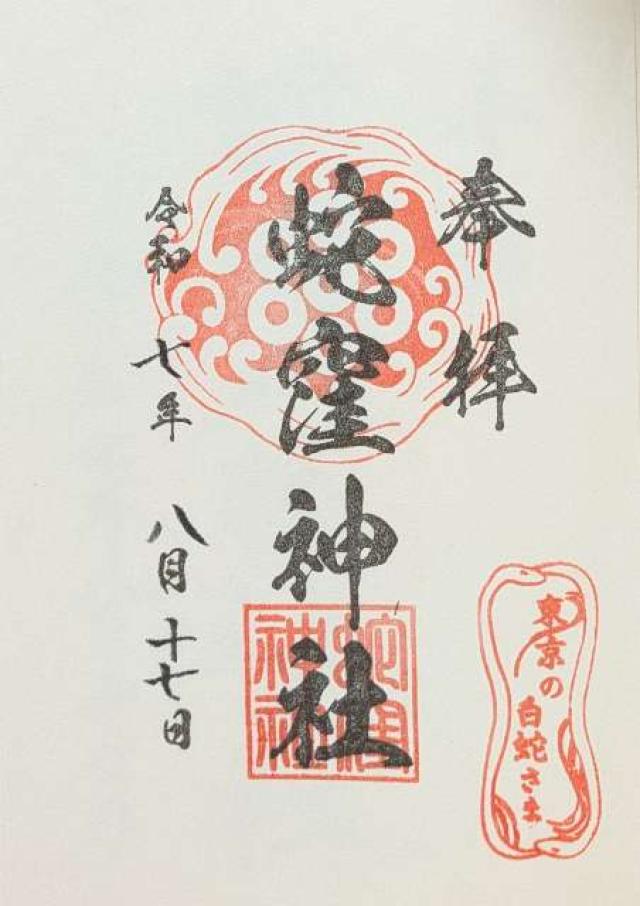 奉拝
蛇窪神社
蛇窪神社
令和七年八月十七日
東京の
白蛇さま